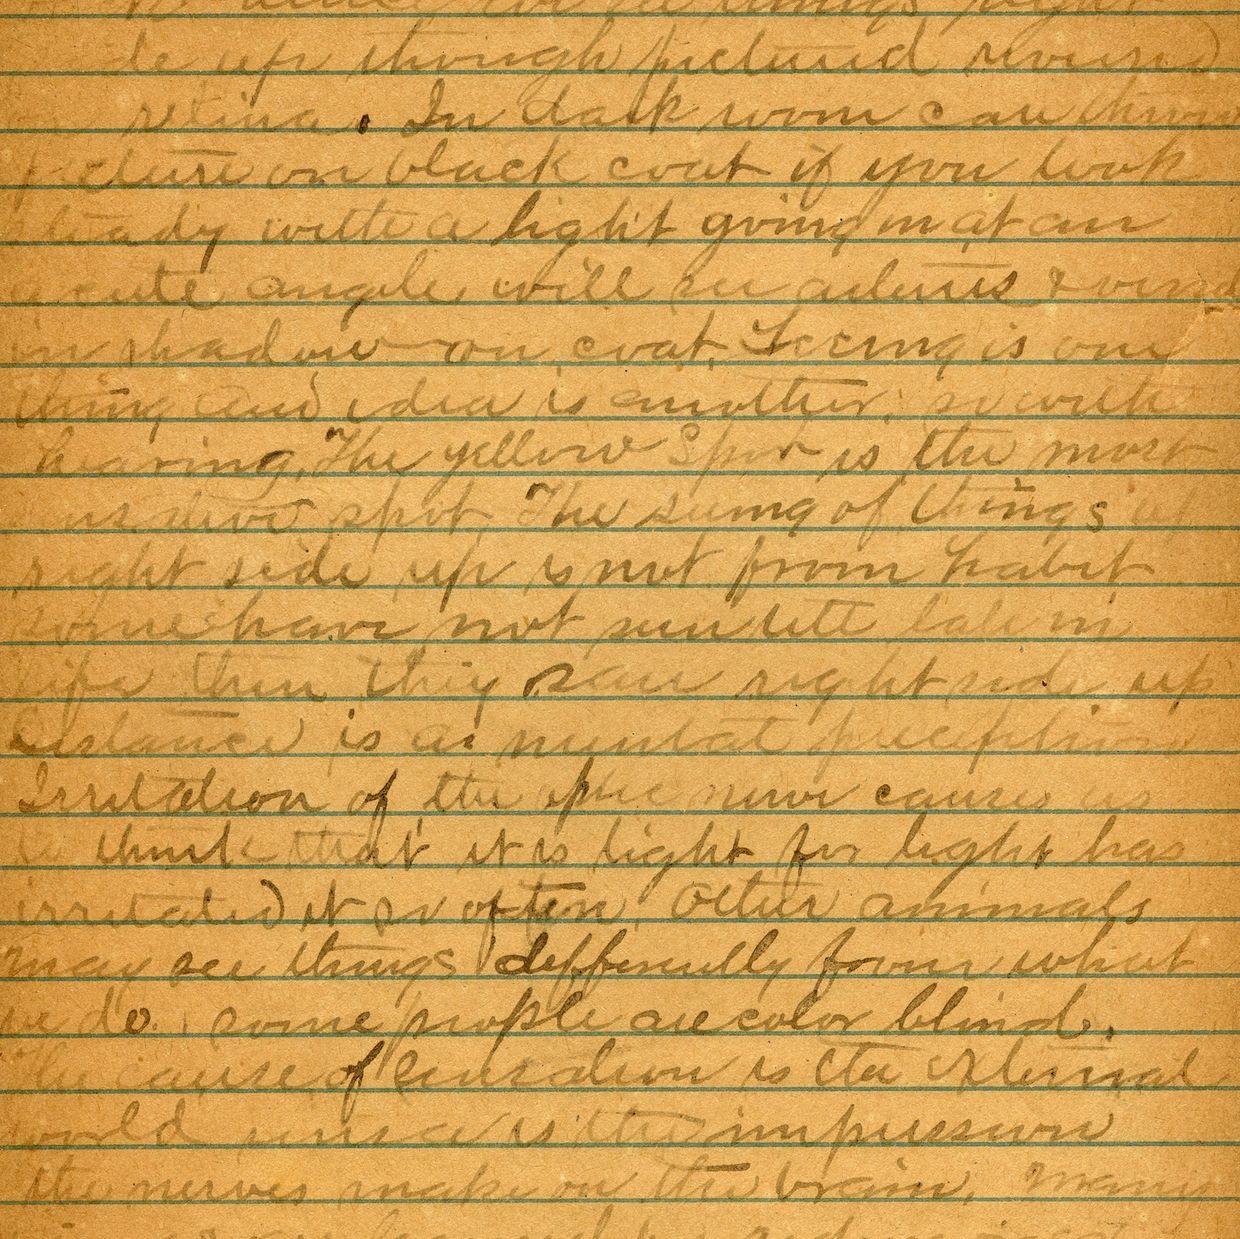 side up though pictured reversed
retina. In dark room can throw
picture on black coat if you look
steady with a light going in at an
acute angle, will see arteries & veins
in shadow on coat. Seeing is one
thing and idea is another: so with
hearing. The yellow Spot is the most
sensitive spot. The seeing of things up
right side up is not from habit
some have not seen till late in
life then they saw right side up
Distance is a mental perception
Irritation of the optic nerve causes us
to think that it is light for light has
irritated it so often. Other animals
may see things differently from what
we do. some people are color blind.
The cause of Sensation is the external
world is the impression
the nerves make on the brain. Many